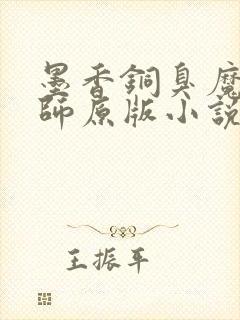 墨香銅臭魔
師原版小說
王振平